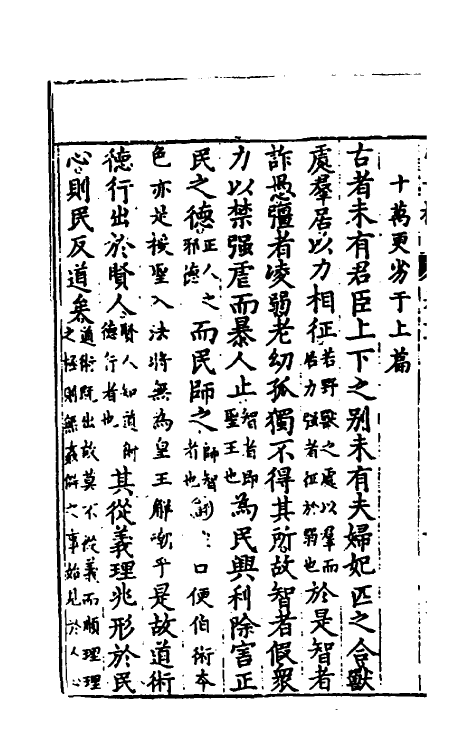 十萬更劣于上篇
古者未有君臣上下之別未有夫婦妃匹之合獸
處羣居以力相征若野獸之處以羣而居力强者征於弱也於是智者
詐愚彊者凌弱老幼孤獨不得其所故智者假衆
力以禁强虐而暴人止智者即聖王也為民興利除害正
民之德正人之邪德而民師之師智者也口便伯術本
色亦是援聖入法將無為皇王解嘲乎是故道術
德行出於賢人賢人知道術德行者也其從義理兆形於民
心則民反道矣道術既出故莫不從義而順理理之極則無姦僻之事始見於人心